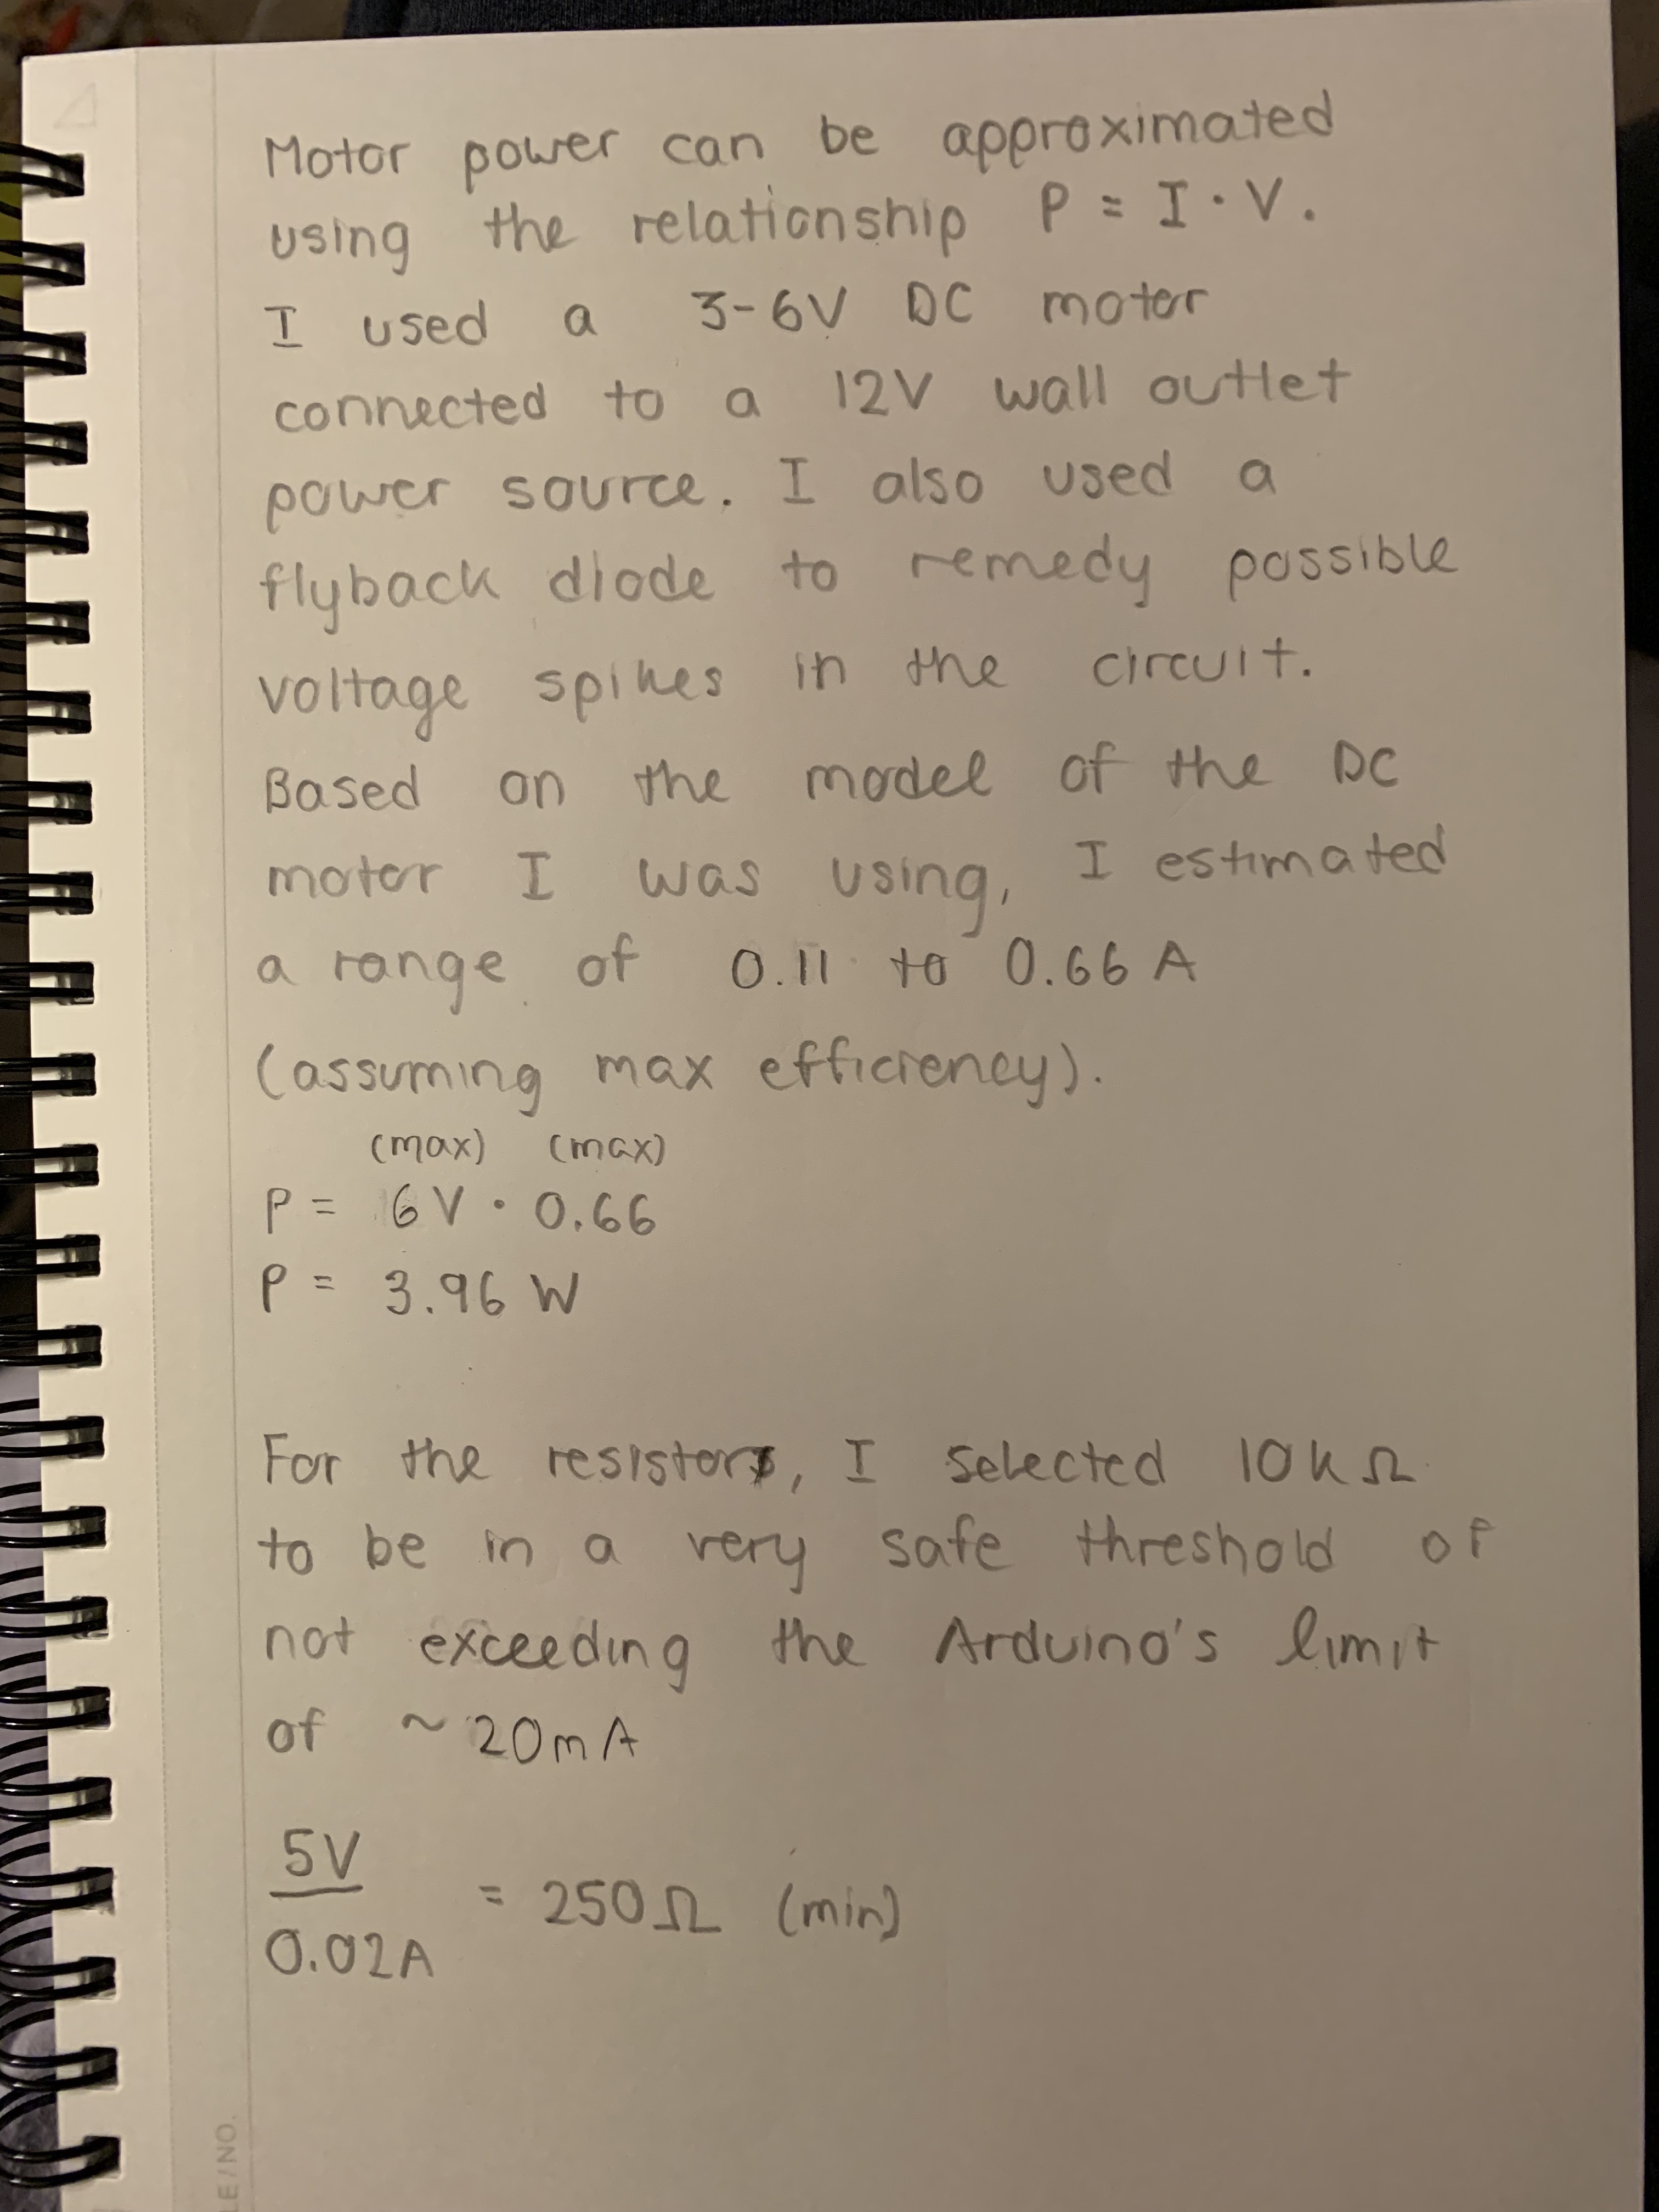 Motor power can be approximated
using the relationship P = I · V.
I used a 3-6V DC motor
connected to a 12V wall outlet
power source. I also used a
flyback diode to remedy possible
voltage spikes in the circuit.
Based on the model of the DC
motor I was using, I estimated
a range of 0.11 to 0.66 A
(assuming max efficiency).
(max) (max)
P = 6V · 0.66
P = 3.96 W
For the resistors, I selected 10kΩ
to be in a very safe threshold of
not exceeding the Arduino's limit
of ~20mA
5V
= 250Ω (min)
0.02A
LE/NO.